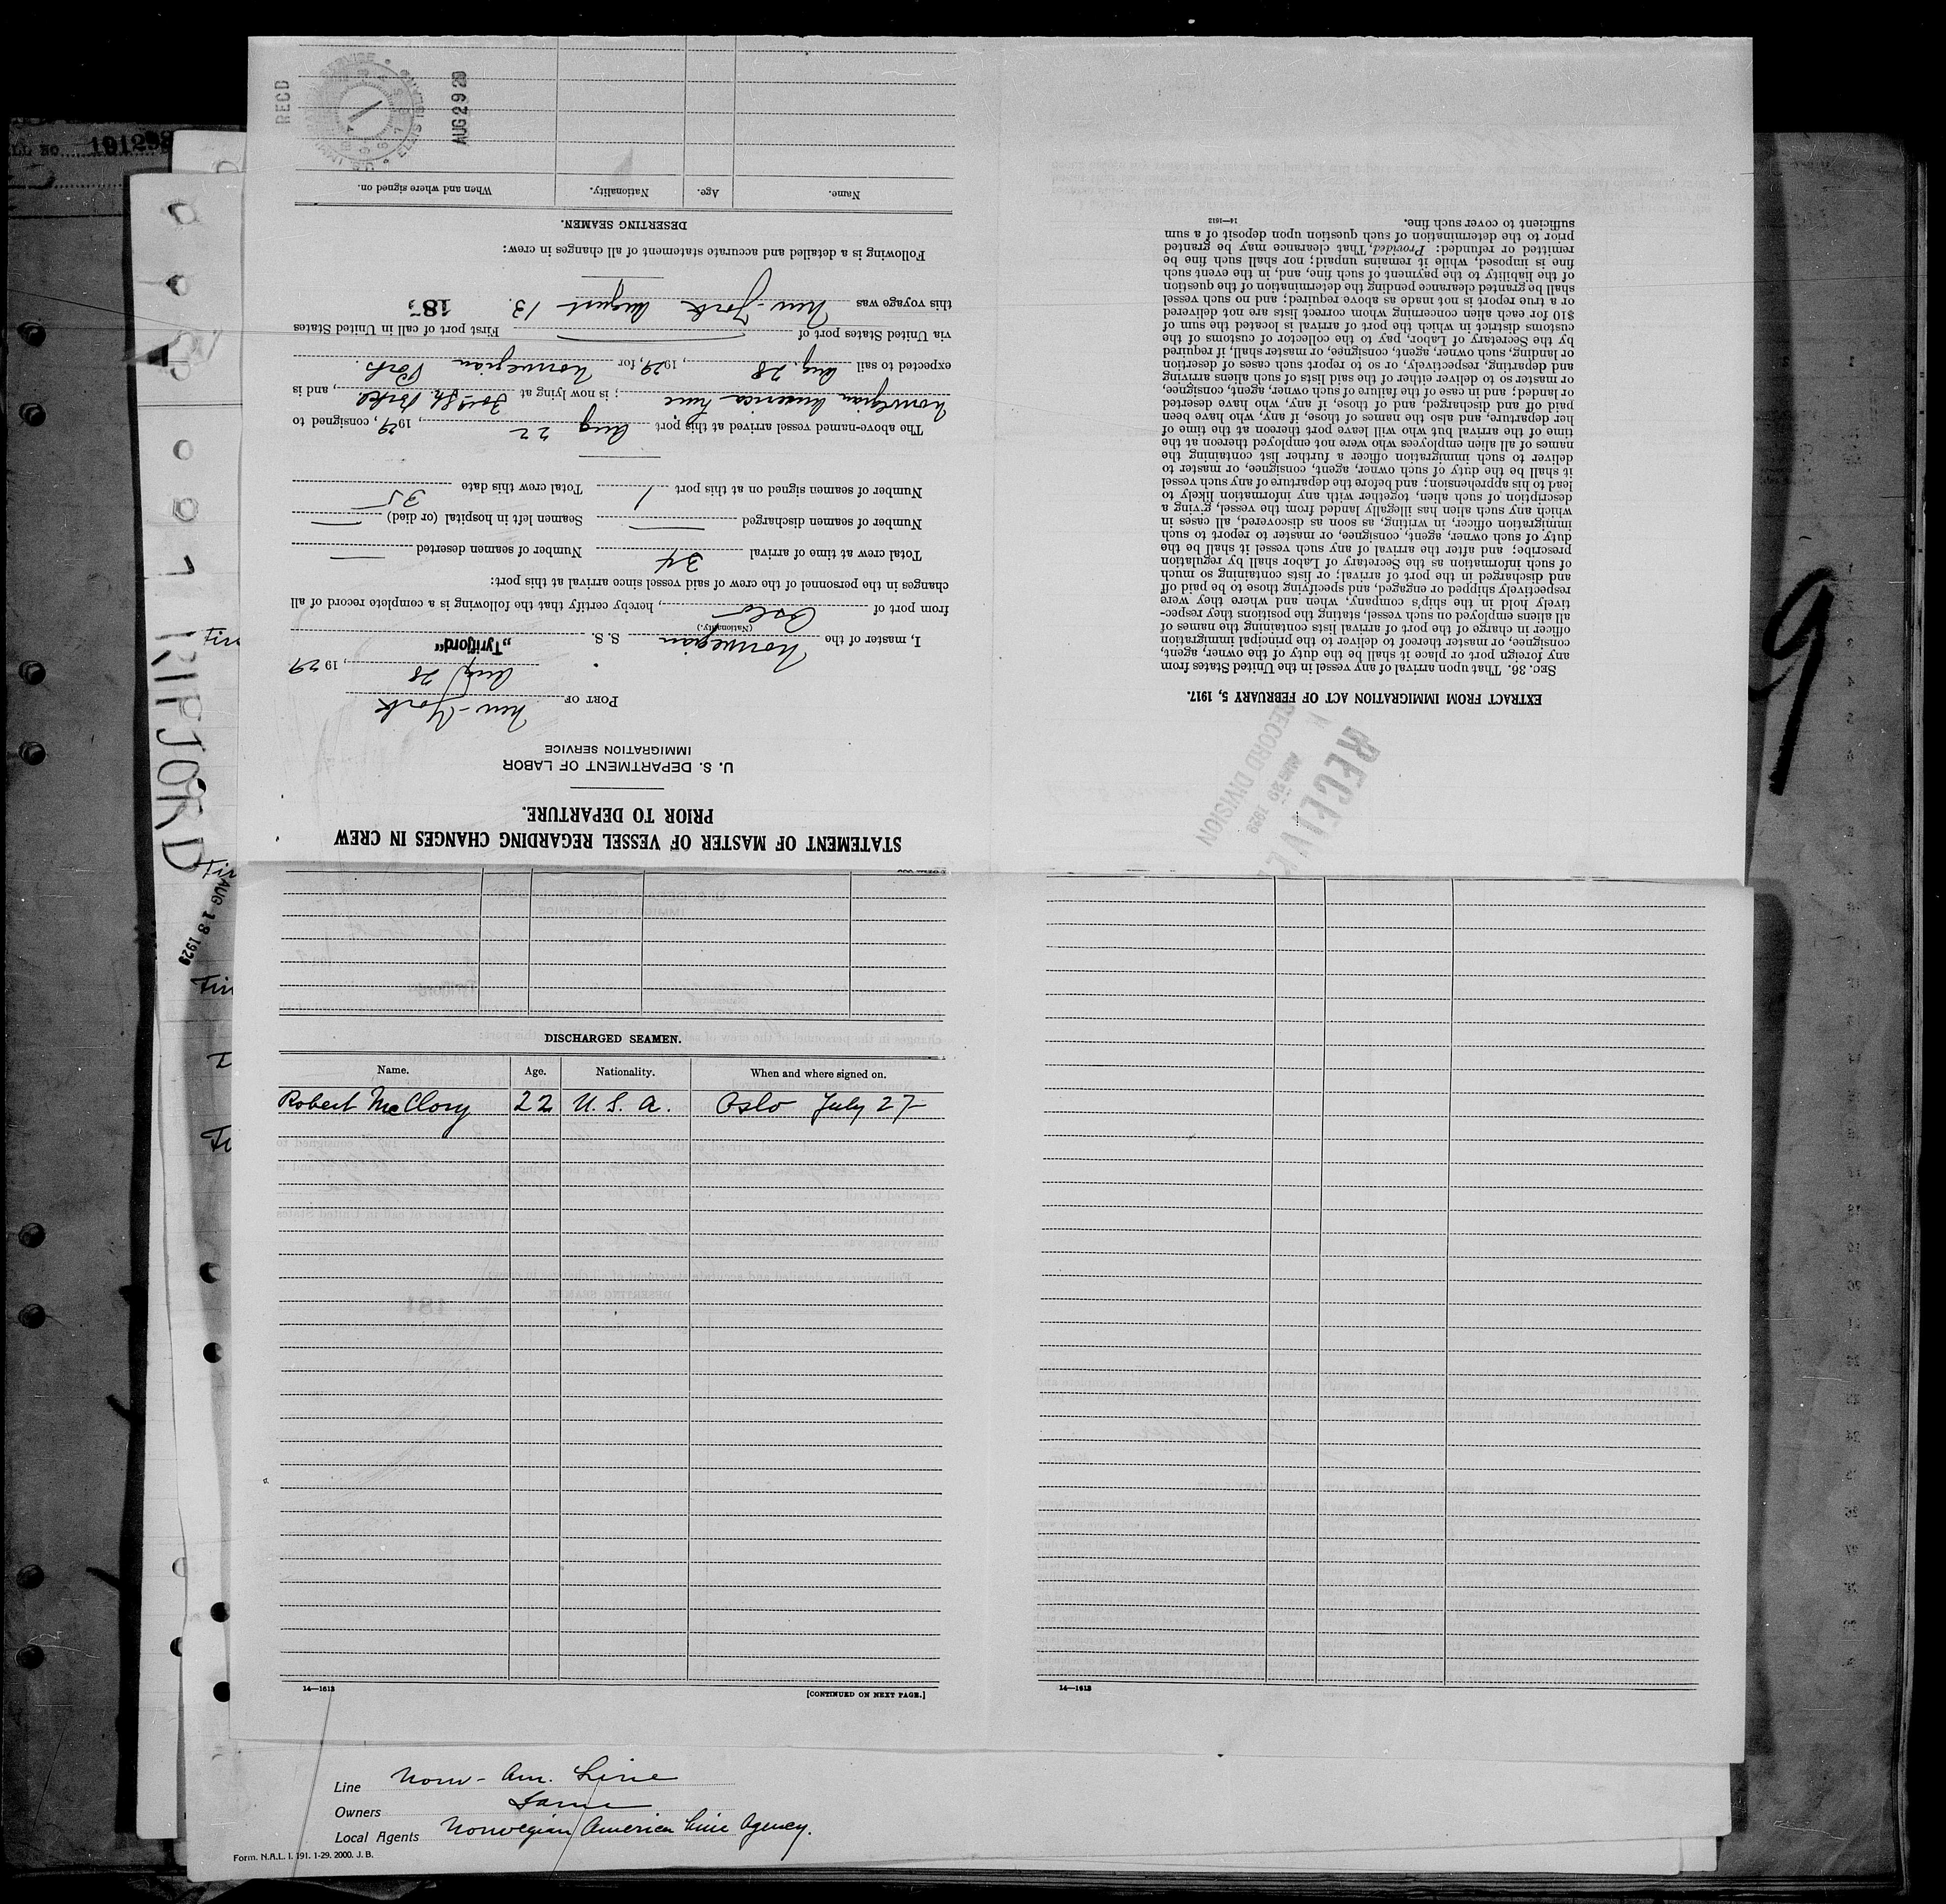 STATEMENT OF MASTER OF VESSEL REGARDING CHANGES IN CREW
PRIOR TO DEPARTURE.
U. S. DEPARTMENT OF LABOR
IMMIGRATION SERVICE
PORT OF New-York
Aug 28, 1929
I, master of the Norwegian S. S. „Tyrifjord“
(Nationality.)
from port of Oslo, hereby certify that the following is a complete record of all
changes in the personnel of the crew of said vessel since arrival at this port:
Total crew at time of arrival 34 Number of seamen deserted —
Number of seamen discharged — Seamen left in hospital (or died) —
Number of seamen signed on at this port 1 Total crew this date 35
The above-named vessel arrived at this port Aug 22, 1929, consigned to
Norwegian America Line; is now lying at, and is
expected to sail Aug. 28, 1929, for Norwegian Ports.
via United States port of — First port of call in United States
this voyage was New-York August 13. 187
Following is a detailed and accurate statement of all changes in crew:
DESERTING SEAMEN.
Name. Age. Nationality. When and where signed on.
RECD
AUG 29 20
U.S. IMMIGRATION SERVICE
ELLIS ISLAND
EXTRACT FROM IMMIGRATION ACT OF FEBRUARY 5, 1917.
SEC. 36. That upon arrival of any vessel in the United States from
any foreign port or place it shall be the duty of the owner, agent,
consignee, or master thereof to deliver to the principal immigration
officer in charge of the port of arrival lists containing the names of
all aliens employed on such vessel, stating the positions they respec-
tively hold in the ship's company, when and where they were
respectively shipped or engaged, and specifying those to be paid off
and discharged in the port of arrival; or lists containing so much
of such information as the Secretary of Labor shall by regulation
prescribe; and after the arrival of any such vessel it shall be the
duty of such owner, agent, consignee, or master to report to such
immigration officer, in writing, as soon as discovered, all cases in
which any such alien has illegally landed from the vessel, giving a
description of such alien, together with any information likely to
lead to his apprehension; and before the departure of any such vessel
it shall be the duty of such owner, agent, consignee, or master to
deliver to such immigration officer a further list containing the
names of all alien employees who were not employed thereon at the
time of the arrival but who will leave port thereon at the time of
her departure, and also the names of those, if any, who have been
paid off and discharged, and of those, if any, who have deserted
or landed; and in case of the failure of such owner, agent, consignee,
or master so to deliver either of the said lists of such aliens arriving
and departing, respectively, or so to report such cases of desertion
or landing, such owner, agent, consignee, or master shall, if required
by the Secretary of Labor, pay to the collector of customs of the
customs district in which the port of arrival is located the sum of
$10 for each alien concerning whom correct lists are not delivered
or a true report is not made as above required; and no such vessel
shall be granted clearance pending the determination of the question
of the liability to the payment of such fine, and, in the event such
fine is imposed, while it remains unpaid; nor shall such fine be
remitted or refunded: Provided, That clearance may be granted
prior to the determination of such question upon deposit of a sum
sufficient to cover such fine.
14—1613
RECEIVED
AUG 29 1929
RECORD DIVISION
9
DISCHARGED SEAMEN.
Name. Age. Nationality. When and where signed on.
Robert McClory 22 U. S. A. Oslo July 27
14—1613 [CONTINUED ON NEXT PAGE.]
14—1613
Line Norw-Am. Line
Owners Same
Local Agents Norwegian America Line Agency.
Form. N.A.L. I. 191. 1-29. 2000. J. B.
AUG 18 1929